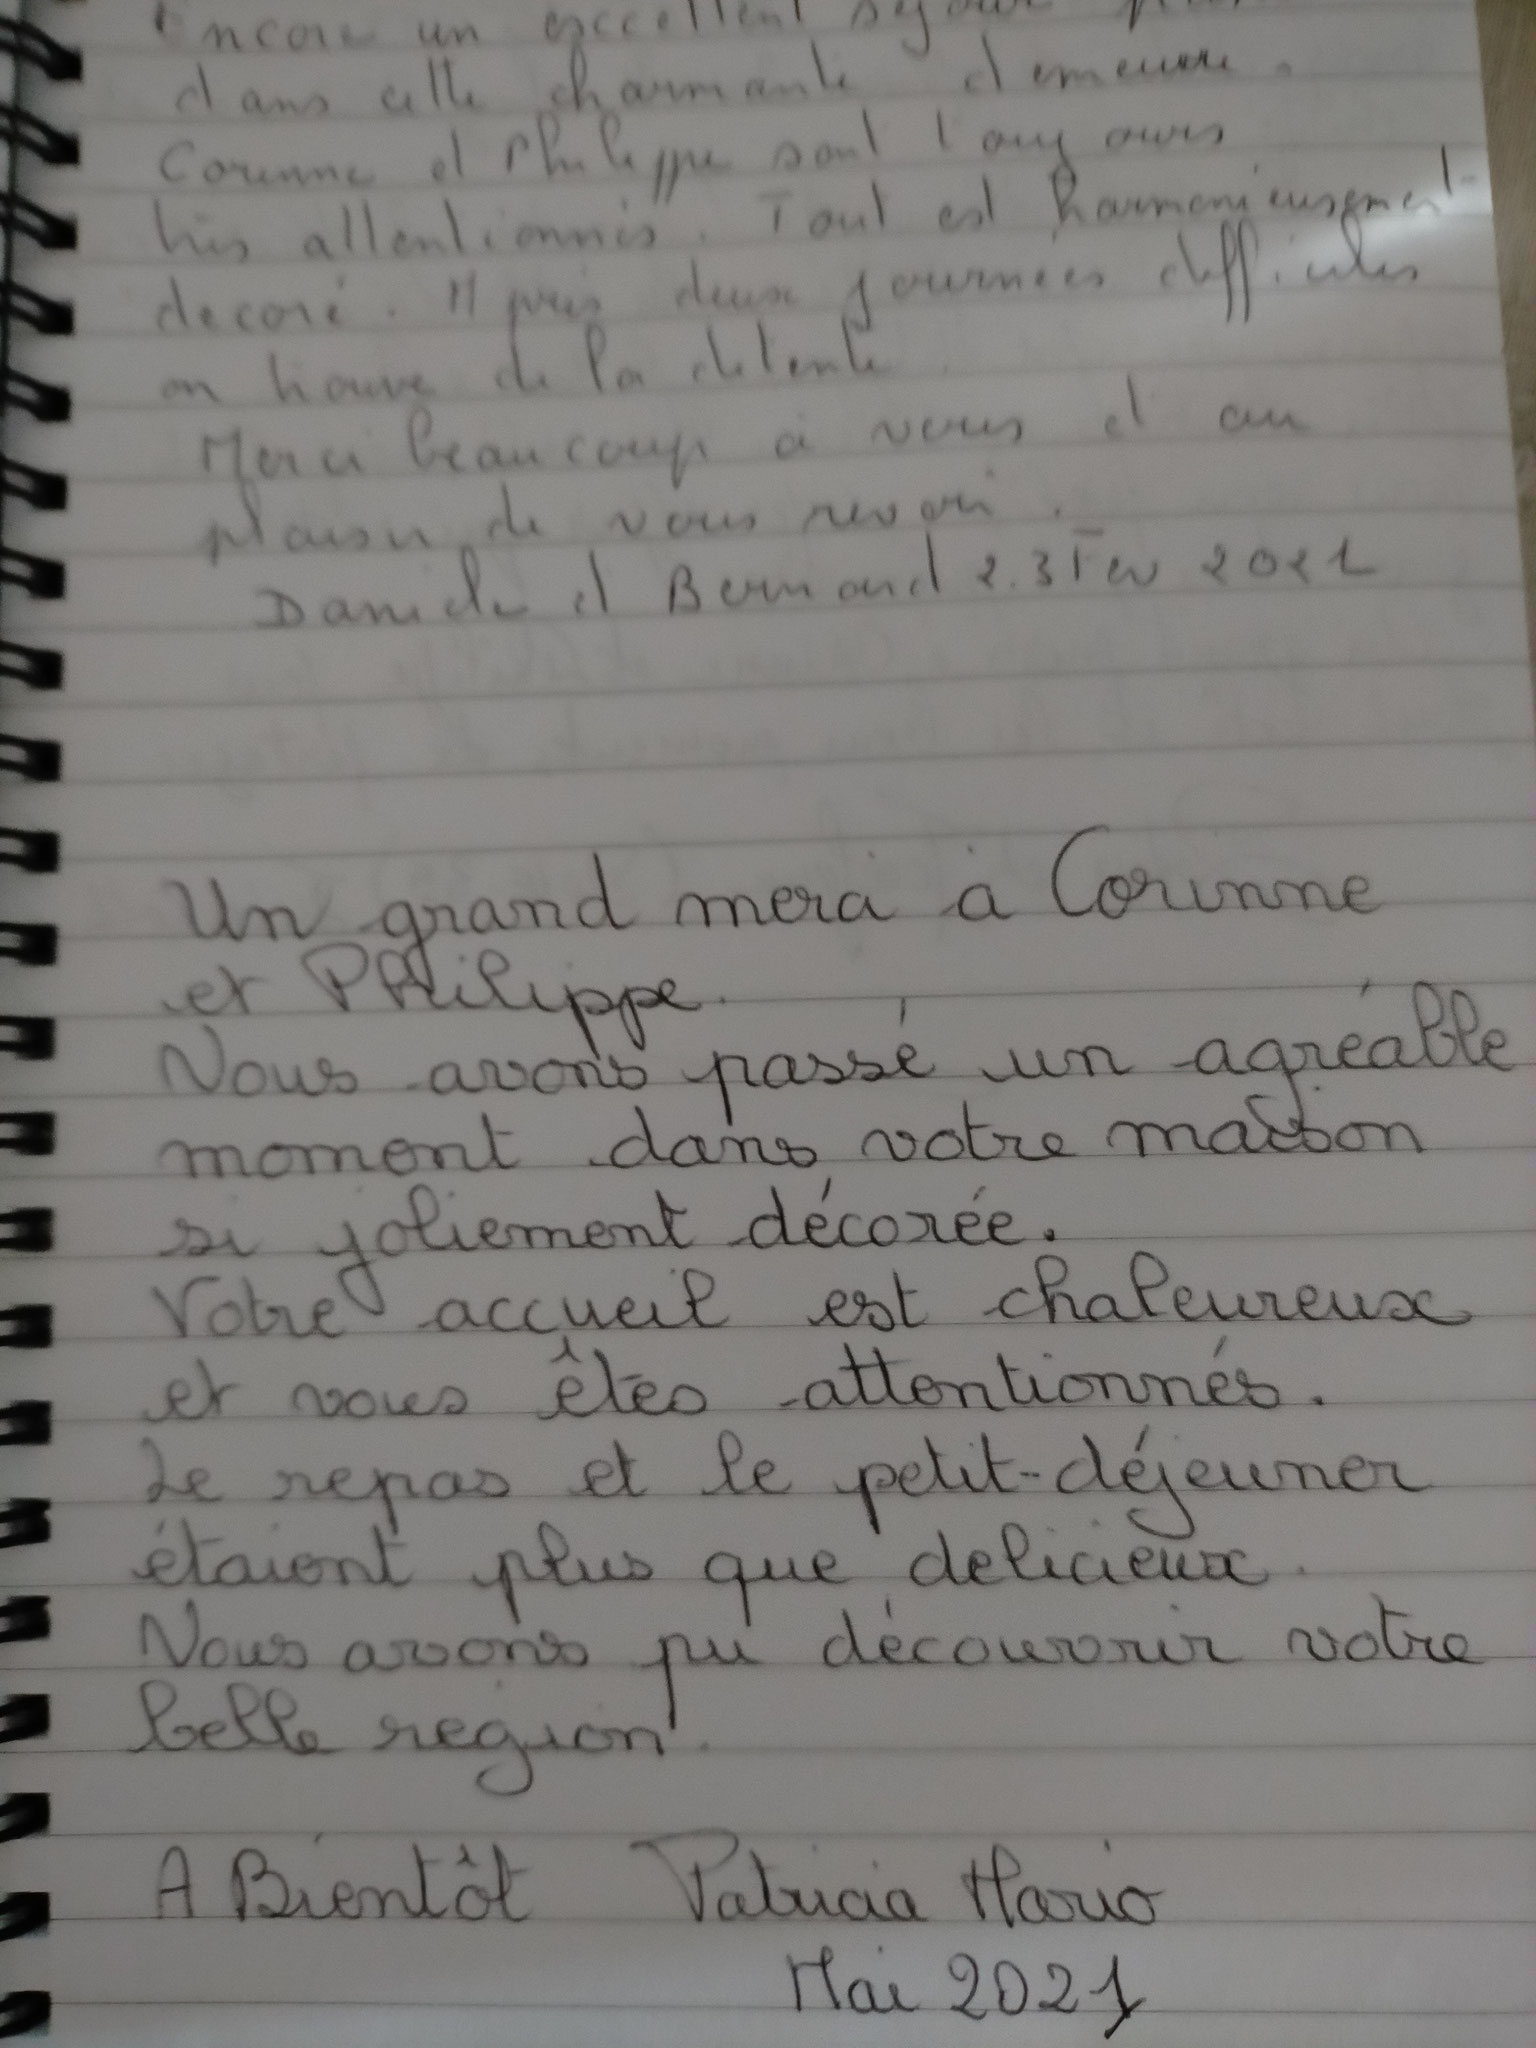 Encore un excellent séjour
dans cette charmante demeure.
Corinne et Philippe sont toujours
très attentionnés. Tout est harmonieusement
decoré. Après deux journées difficiles
on trouve de la détente.
Merci beaucoup à vous et au
plaisir de vous revoir.
Daniele et Bernard 2.3 Fev 2021
Un grand merci à Corinne
et Philippe.
Nous avons passé un agréable
moment dans votre maison
si joliement décorée.
Votre accueil est chaleureux
et vous êtes attentionnés.
Le repas et le petit-déjeuner
étaient plus que delicieux.
Nous avons pu découvrir votre
belle region.
A Bientôt Patricia Mario
Mai 2021